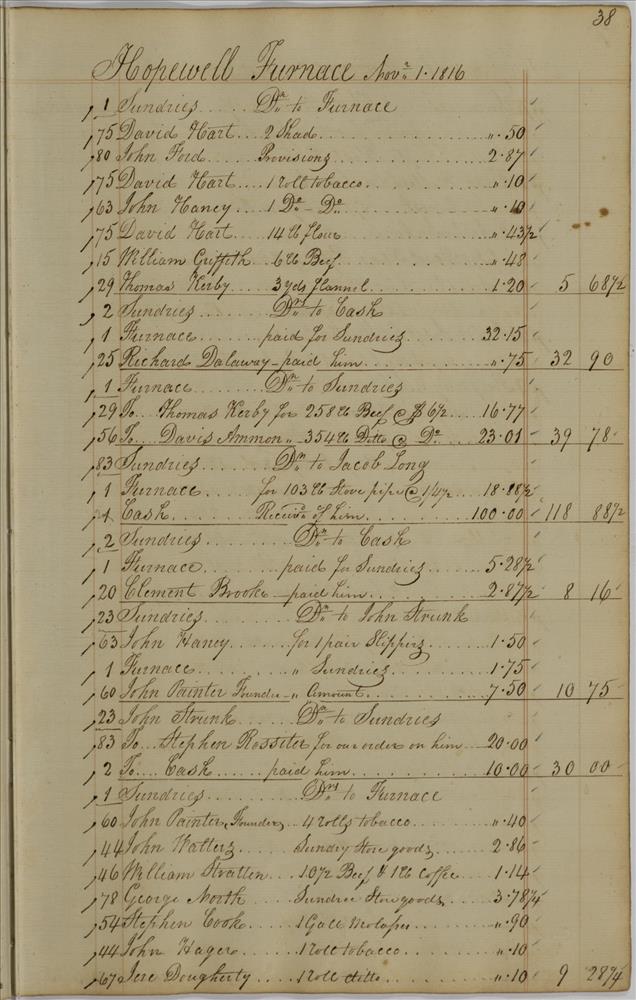 38
Hopewell Furnace Novr. 1. 1816
1 Sundries..... Drs. to Furnace
75 David Hart.... 2 Shad.......... ". 50
80 John Ford.... Provisions.......... 2. 87
75 David Hart.... 1 roll tobacco.......... ". 10
63 John Haney.... 1 Do - Do.......... ". 10
75 David Hart.... 14 lb flour.......... ". 43 1/2
15 William Griffith.. 6 lb Beef.......... ". 48
29 Thomas Kerby.... 3 yds flannel.......... 1. 20 5 68 1/2
2 Sundries....... Drs. to Cash
1 Furnace....... paid for Sundries.......... 32.15
25 Richard Dalaway - paid him.......... ". 75 32 90
1 Furnace....... Dr. to Sundries
29 To... Thomas Kerby for 258 lb Beef @ $ 6 1/2.... 16.77
56 To.... Davis Ammon " 354 lb Ditto @ Do..... 23.01 39 78
83 Sundries....... Drs. to Jacob Long
1 Furnace....... for 103 lb Stove pipe @ 1/4 1/2... 18.88 1/2
1 Cash....... Receivd. of him.......... 100.00 118 88 1/2
2 Sundries....... Drs. to Cash
1 Furnace....... paid for Sundries....... 5.28 1/2
20 Clement Brooke - paid him....... 2.87 1/2 8 16
23 Sundries....... Drs. to John Strunk
63 John Haney....... for 1 pair Slippers....... 1.50
1 Furnace....... " Sundries....... 1.75
60 John Painter Founder - " Amount....... 7.50 10 75
23 John Strunk....... Dr. to Sundries
83 To... Stephen Rossiter for our order on him.... 20.00
2 To.... Cash...... paid him.......... 10.00 30 00
1 Sundries....... Drs. to Furnace
60 John Painter, Founder, 4 rolls tobacco....... ". 40
44 John Walters....... Sundry Store goods....... 2.86
46 William Stratten... 10 1/2 Beef & 1 lb Coffee.... 1.14
78 George North.... Sundree Store goods..... 3.78 3/4
54 Stephen Cook.... 1 Gall Molasses....... ". 90
44 John Hager....... 1 roll tobacco....... ". 10
67 Jese Dougherty.... 1 roll ditto....... ". 10 9 28 3/4